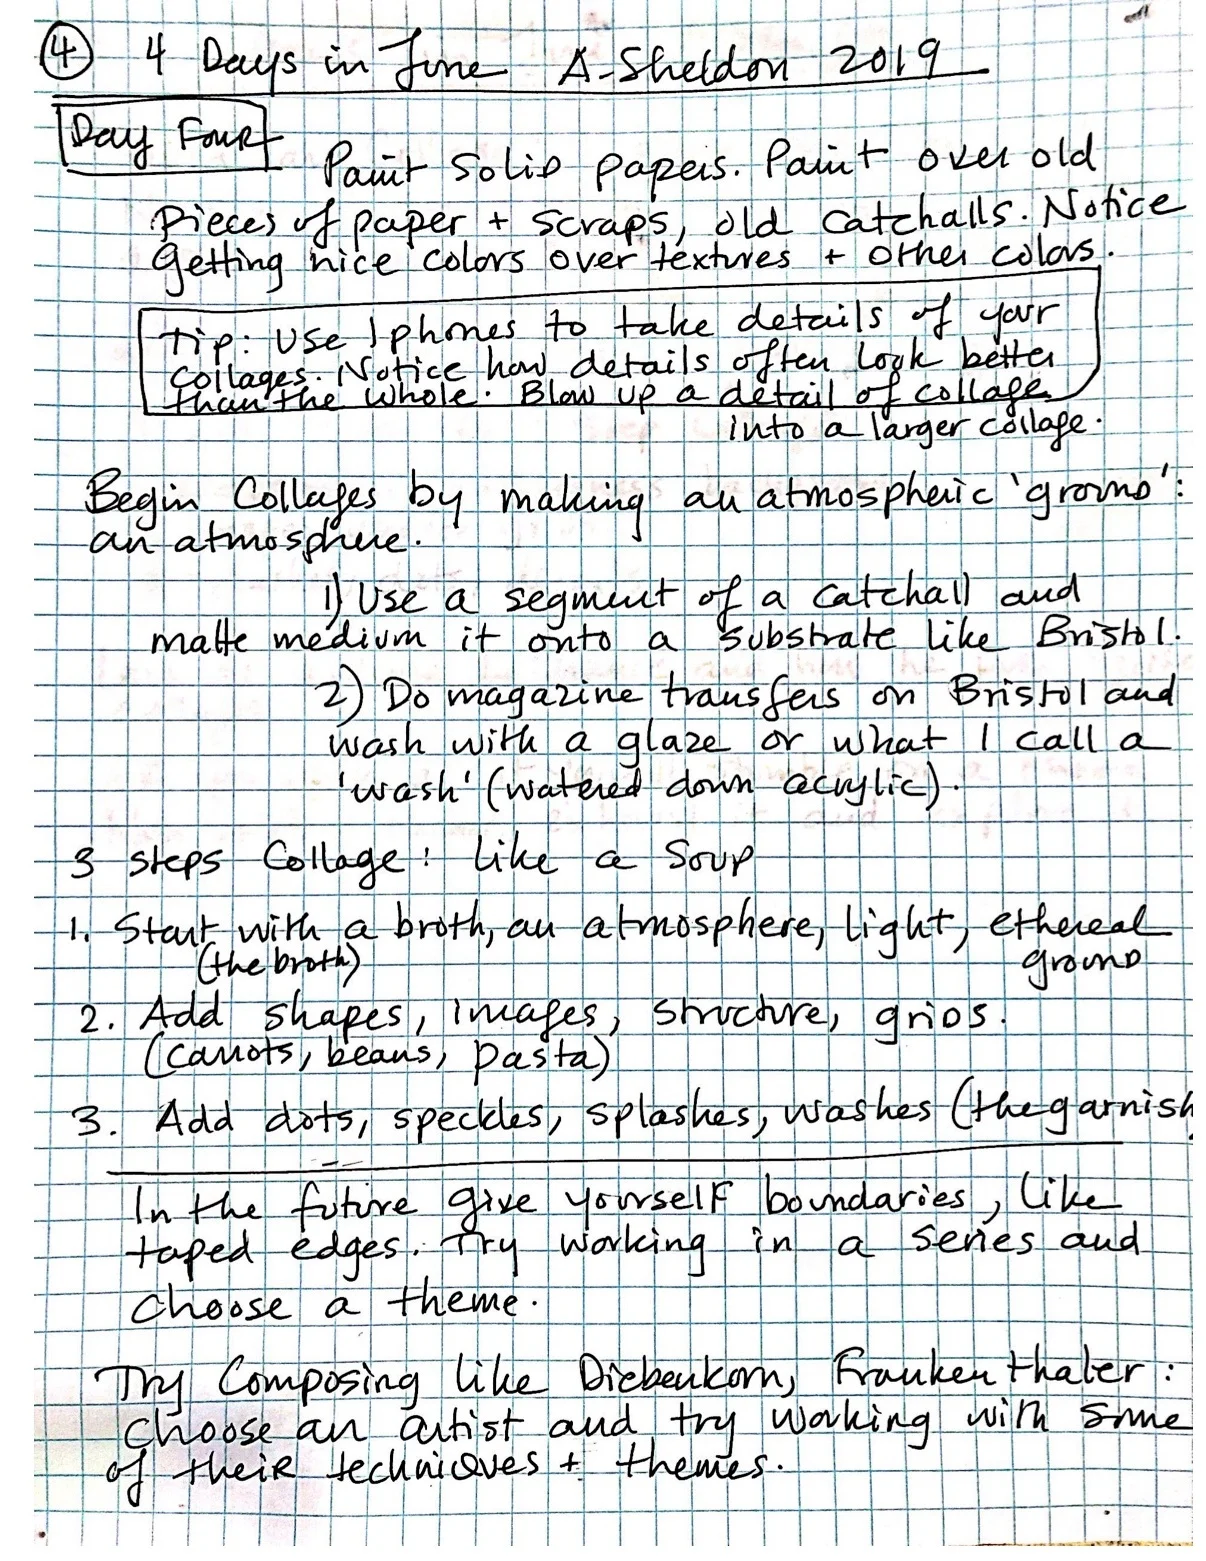 4 4 Days in June A-Sheldon 2019
Day Four
Paint Solid papers. Paint over old
pieces of paper + scraps, old catchalls. Notice
getting nice colors over textures + other colors.
Tip: Use Iphones to take details of your
collages. Notice how details often look better
than the whole. Blow up a detail of collage
into a larger collage.
Begin Collages by making an atmospheric 'ground':
an atmosphere.
1) Use a segment of a catchall and
matte medium it onto a substrate like Bristol.
2) Do magazine transfers on Bristol and
wash with a glaze or what I call a
'wash' (watered down acrylic).
3 steps Collage: Like a Soup
1. Start with a broth, an atmosphere, light, ethereal
(the broth) ground
2. Add shapes, images, structure, grids.
(carrots, beans, pasta)
3. Add dots, speckles, splashes, washes (the garnish)
In the future give yourself boundaries, like
taped edges. Try working in a series and
choose a theme.
Try Composing like Diebenkorn, Frankenthaler:
choose an artist and try working with some
of their techniques + themes.